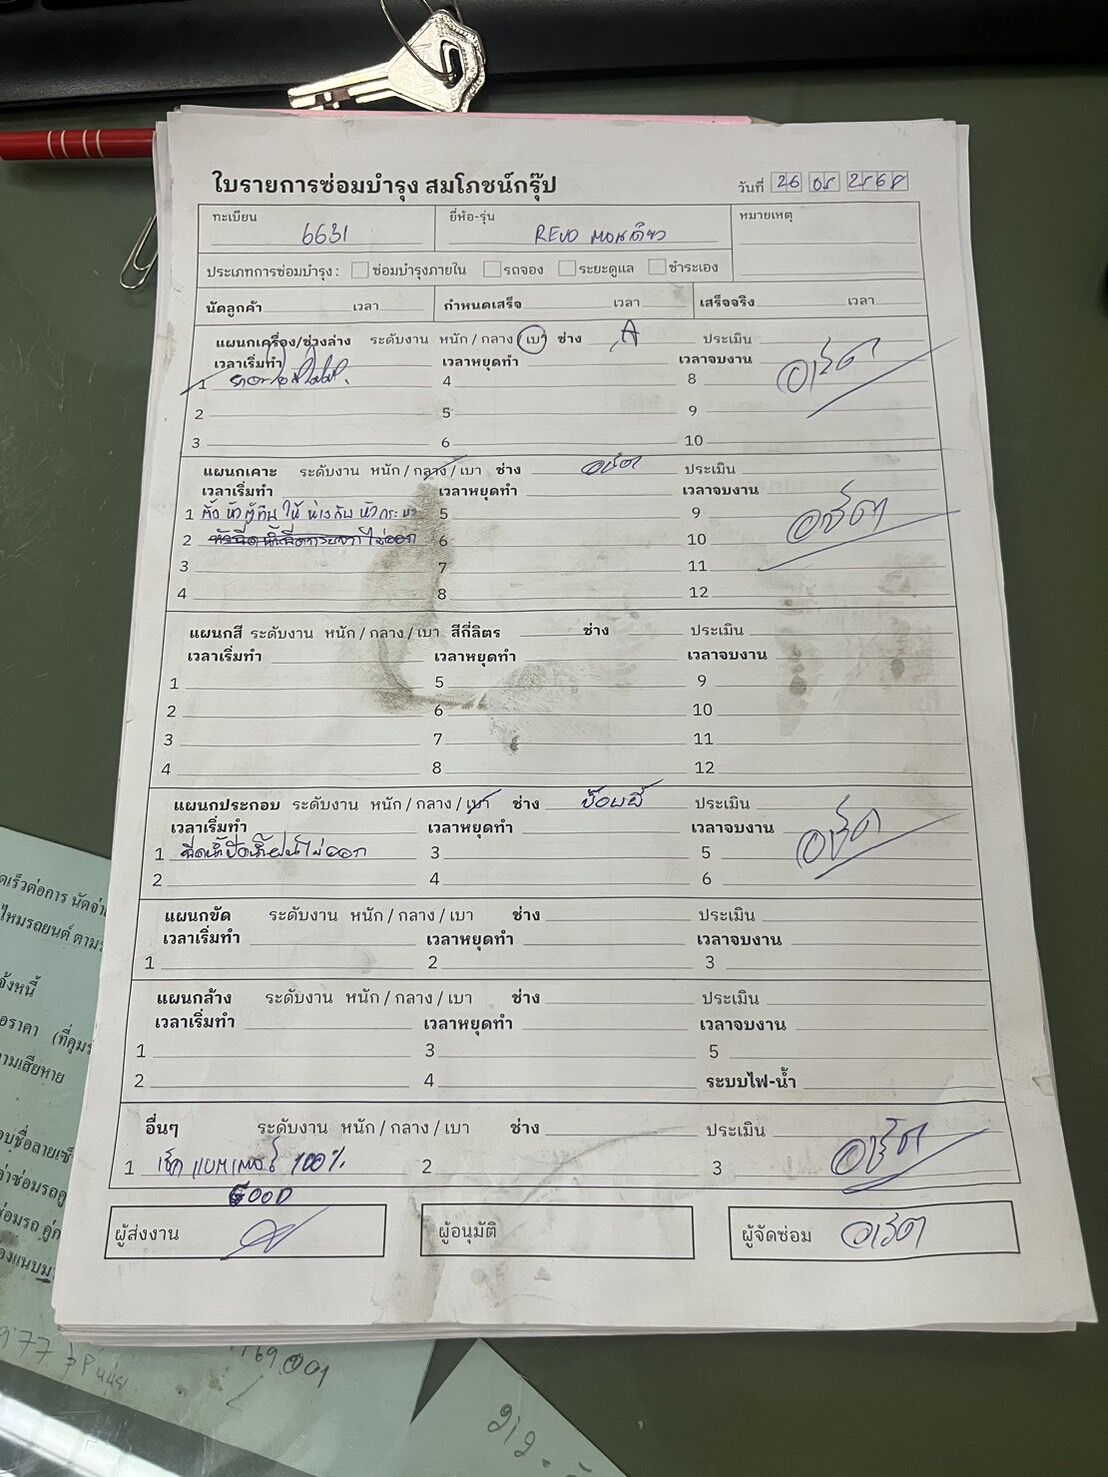 ใบรายการซ่อมบำรุง สมโภชน์กรุ๊ป
วันที่ 26 05 2568
ทะเบียน 6631 ยี่ห้อ-รุ่น REVO ตอนเดียว หมายเหตุ
ประเภทการซ่อมบำรุง : ซ่อมบำรุงภายใน รถจอง ระยะดูแล ชำระเอง
นัดลูกค้า เวลา กำหนดเสร็จ เวลา เสร็จจริง เวลา
แผนกเครื่อง/ช่วงล่าง ระดับงาน หนัก / กลาง / เบา ช่าง A ประเมิน
เวลาเริ่มทำ เวลาหยุดทำ เวลาจบงาน
1 4 8
2 5 9
3 6 10
แผนกเคาะ ระดับงาน หนัก / กลาง / เบา ช่าง ประเมิน
เวลาเริ่มทำ เวลาหยุดทำ เวลาจบงาน
1 ให้ ห่างกับ หัวกระบะ 5 9
2 ไม่ออก 6 10
3 7 11
4 8 12
แผนกสี ระดับงาน หนัก / กลาง / เบา สีกี่ลิตร ช่าง ประเมิน
เวลาเริ่มทำ เวลาหยุดทำ เวลาจบงาน
1 5 9
2 6 10
3 7 11
4 8 12
แผนกประกอบ ระดับงาน หนัก / กลาง / เบา ช่าง ประเมิน
เวลาเริ่มทำ เวลาหยุดทำ เวลาจบงาน
1 ไม่ออก 3 5
2 4 6
แผนกขัด ระดับงาน หนัก / กลาง / เบา ช่าง ประเมิน
เวลาเริ่มทำ เวลาหยุดทำ เวลาจบงาน
1 2 3
แผนกล้าง ระดับงาน หนัก / กลาง / เบา ช่าง ประเมิน
เวลาเริ่มทำ เวลาหยุดทำ เวลาจบงาน
1 3 5
2 4 ระบบไฟ-น้ำ
อื่นๆ ระดับงาน หนัก / กลาง / เบา ช่าง ประเมิน
1 เช็ค แบตเตอรี่ 100% 2 3
GOOD
ผู้ส่งงาน ผู้อนุมัติ ผู้จัดซ่อม